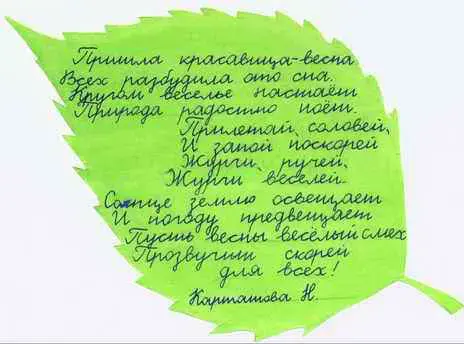 Пришла красавица-весна
Всех разбудила ото сна.
Кругом веселье настаёт
Природа радостно поёт.
Прилетай, соловей,
И запой поскорей
Журчи, ручей,
Журчи веселей.
Солнце землю освещает
И погоду предвещает
Пусть весны весёлый смех
Прозвучит скорей
для всех!
Карташова Н.